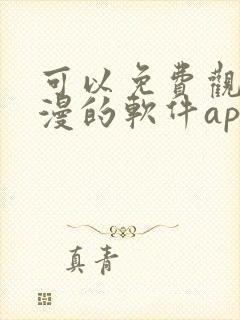 可以免費觀
漫的軟件ap
真青